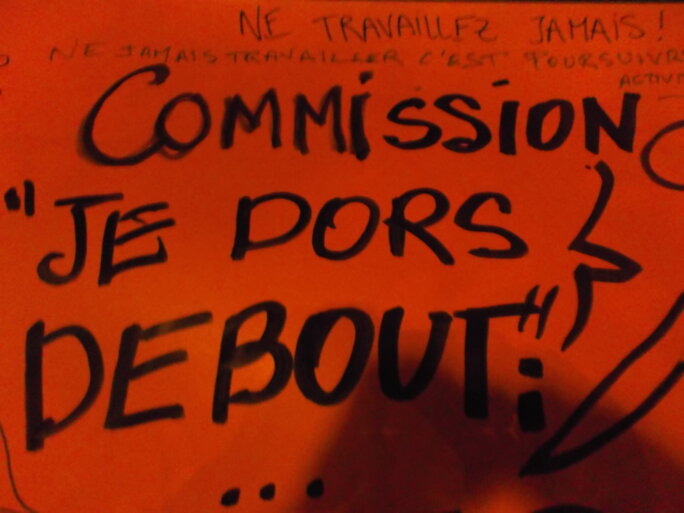 NE TRAVAILLEZ JAMAIS !
NE JAMAIS TRAVAILLER C'EST POURSUIVRE
COMMISSION
"JE DORS
DEBOUT":
...